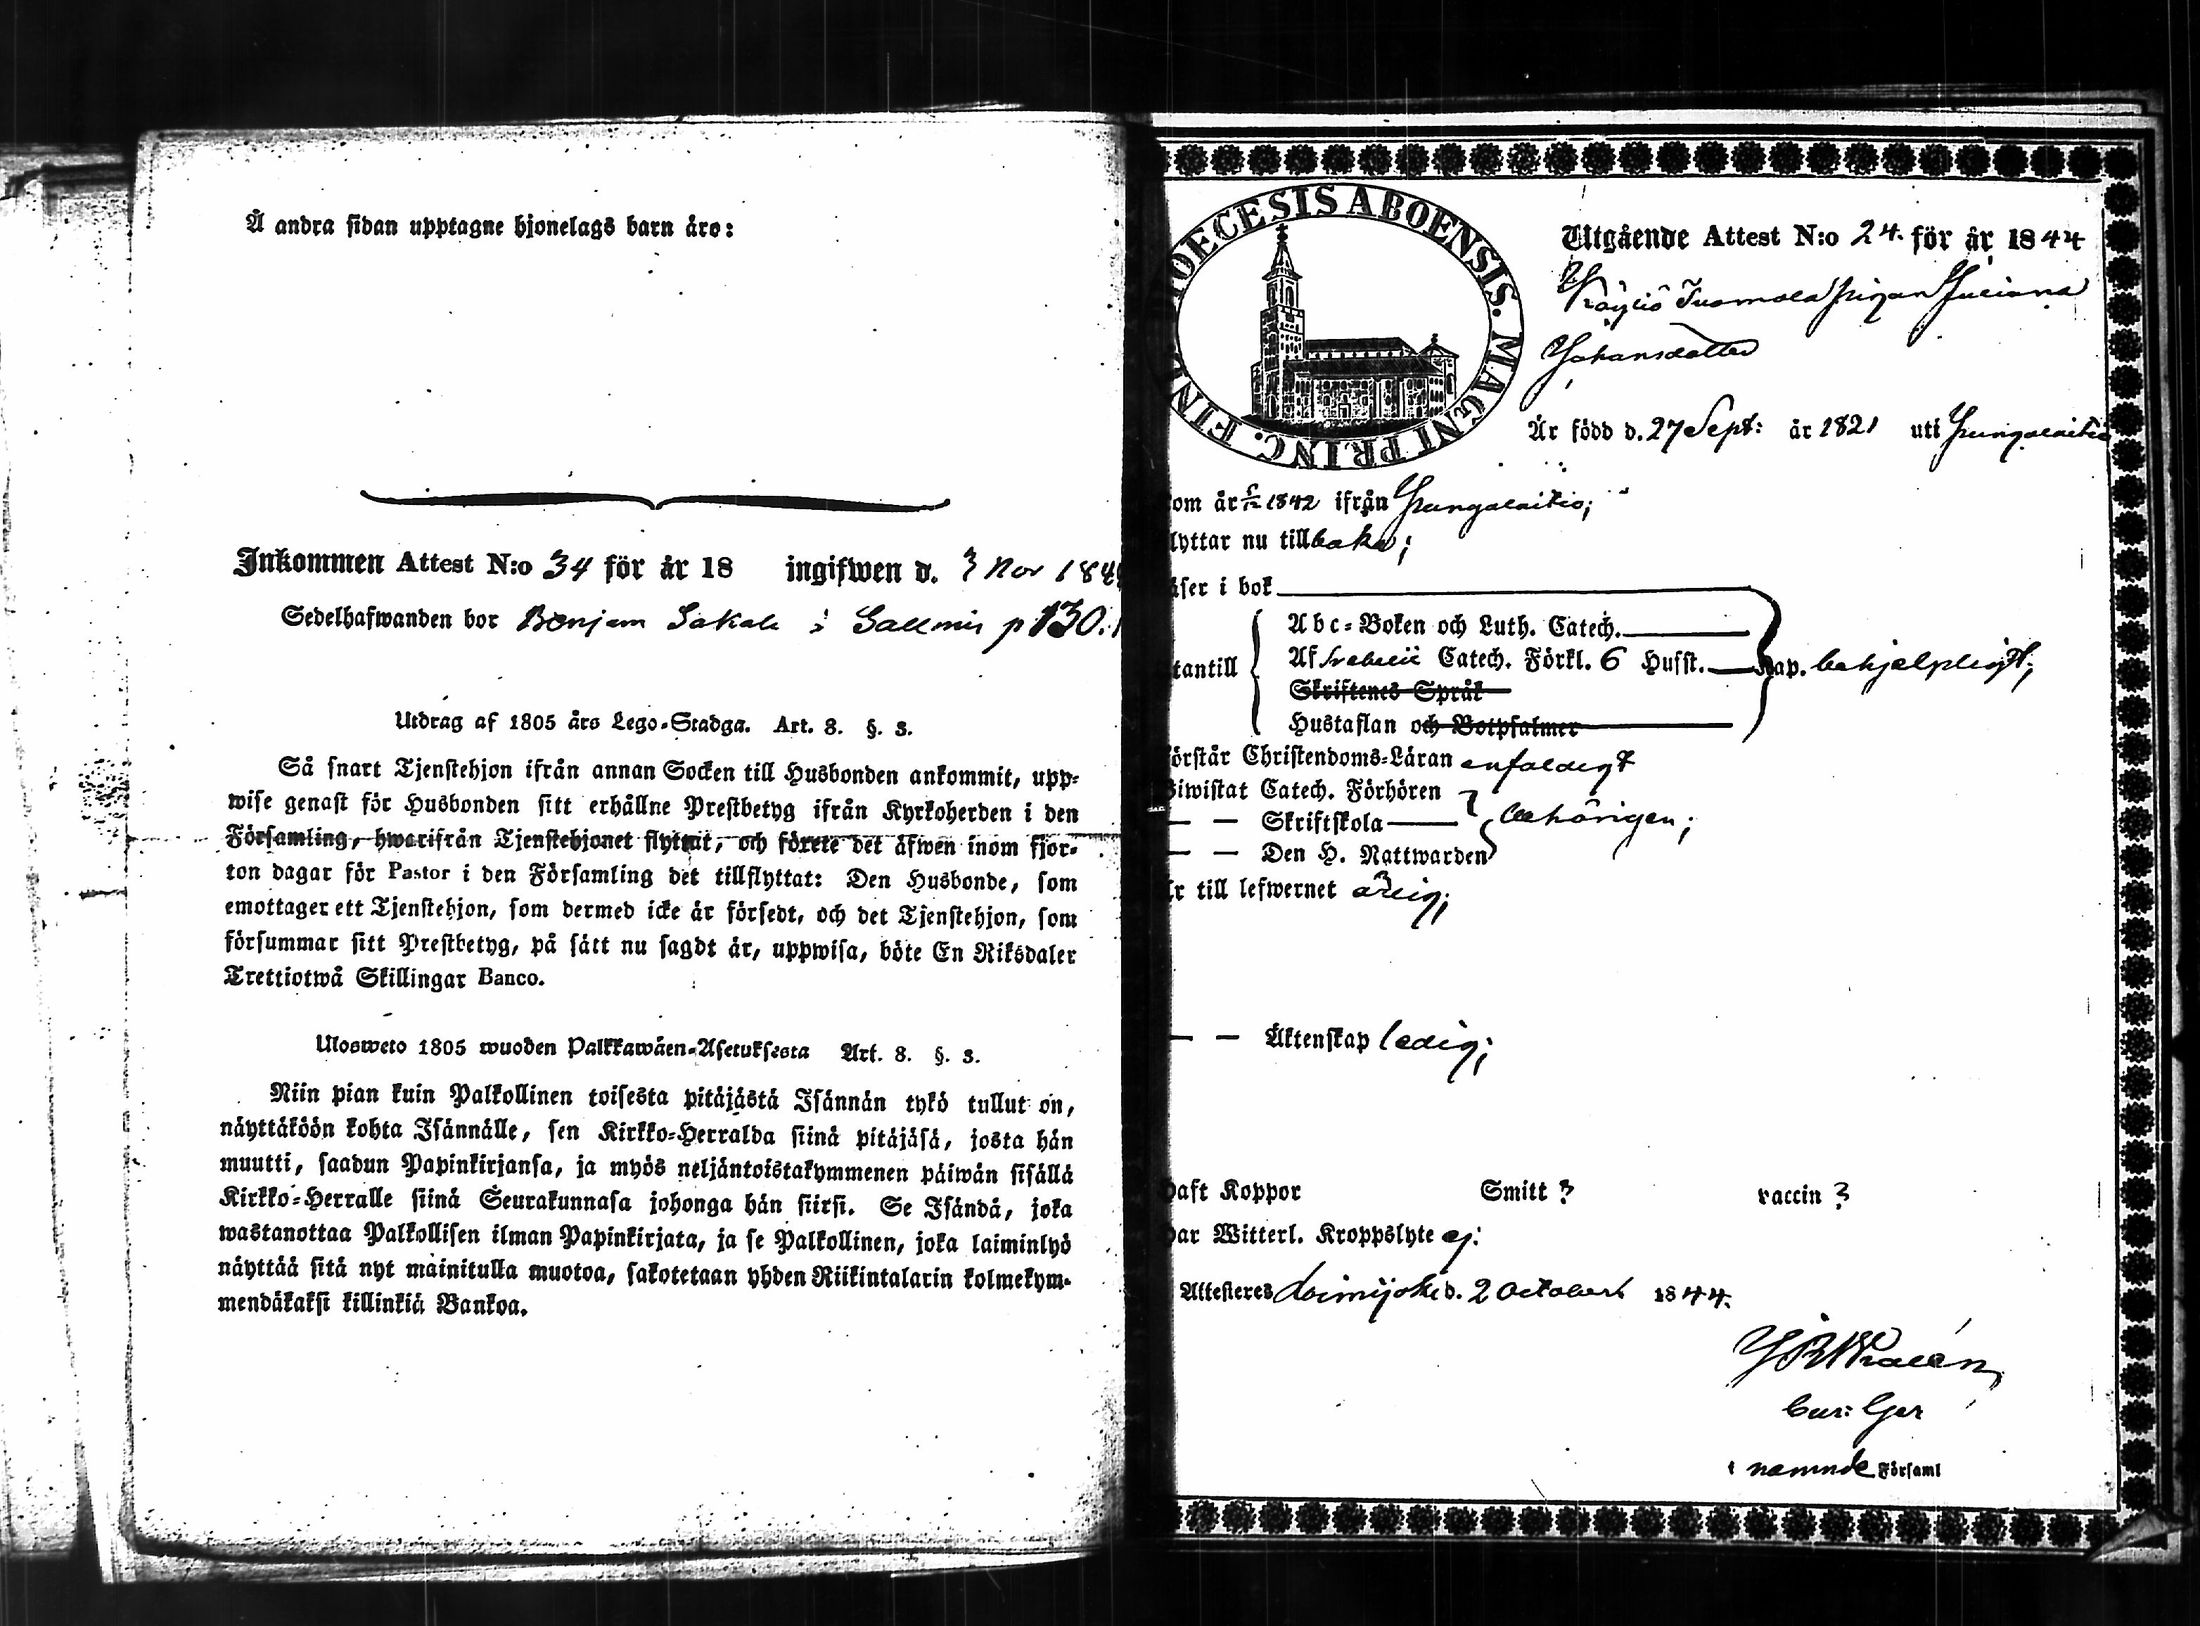 Å andra sidan upptagne hjonelags barn äro:
Inkommen Attest N:o 34 för år 18 ingifwen d. 3 Nov 184
Sedelhafwanden bor Benjam Sakala i Sallmis p 130.
Utdrag af 1805 års Lego-Stadga. Art. 8. §. 3.
Så snart Tjenstehjon ifrån annan Socken till Husbonden ankommit, upp-
wise genast för Husbonden sitt erhållne Prestbetyg ifrån Kyrkoherden i den
Församling, hwarifrån Tjenstehjonet flyttat, och förete det äfwen inom fjor-
ton dagar för Pastor i den Församling det tillflyttat: Den Husbonde, som
emottager ett Tjenstehjon, som dermed icke är försedt, och det Tjenstehjon, som
försummar sitt Prestbetyg, på sätt nu sagdt är, uppwisa, böte En Riksdaler
Trettiotwå Skillingar Banco.
Ulosweto 1805 wuoden Palkkawäen-Asetuksesta Art. 8. §. 3.
Niin pian kuin Palkollinen toisesta pitäjästä Isännän tykö tullut on,
näyttäköön kohta Isännälle, sen Kirkko-Herralda siinä pitäjäsä, josta hän
muutti, saadun Papinkirjansa, ja myös neljäntoistakymmenen päiwän sisällä
Kirkko-Herralle siinä Seurakunnasa johonga hän siirsi. Se Isändä, joka
wastanottaa Palkollisen ilman Papinkirjata, ja se Palkollinen, joka laiminlyö
näyttää sitä nyt mainitulla muotoa, sakotetaan yhden Riikintalarin kolmekym-
mendäkaksi killinkiä Bankoa.
DIOECESIS ABOENSIS. MAGNI PRINC. FINL.
Utgående Attest N:o 24. för år 1844
Köyliö Tuomola pigan Juliana
Johansdotter
Är född d. 27 Sept: år 1821 uti Pungalaitio
om år 1842 ifrån Pungalaitio;
lyttar nu tillbaka;
äser i bok
tantill
Abc-Boken och Luth. Catech.
Af Svebelii Catech. Förkl. 6 Hufst. Kap. behjelpligt;
Skriftenes Språk
Hustaflan och Botpsalmer
örstår Christendoms-Läran enfaldigt
Biwistat Catech. Förhören
— — Skriftskola behörigen;
— — Den H. Nattwarden
r till lefwernet ärlig;
— — Äktenskap ledig;
haft Koppor Smitt ? vaccin ?
har Witterl. Kroppslyte ej:
Attesteres Loimijoki d. 2 October 1844.
namnde Församl